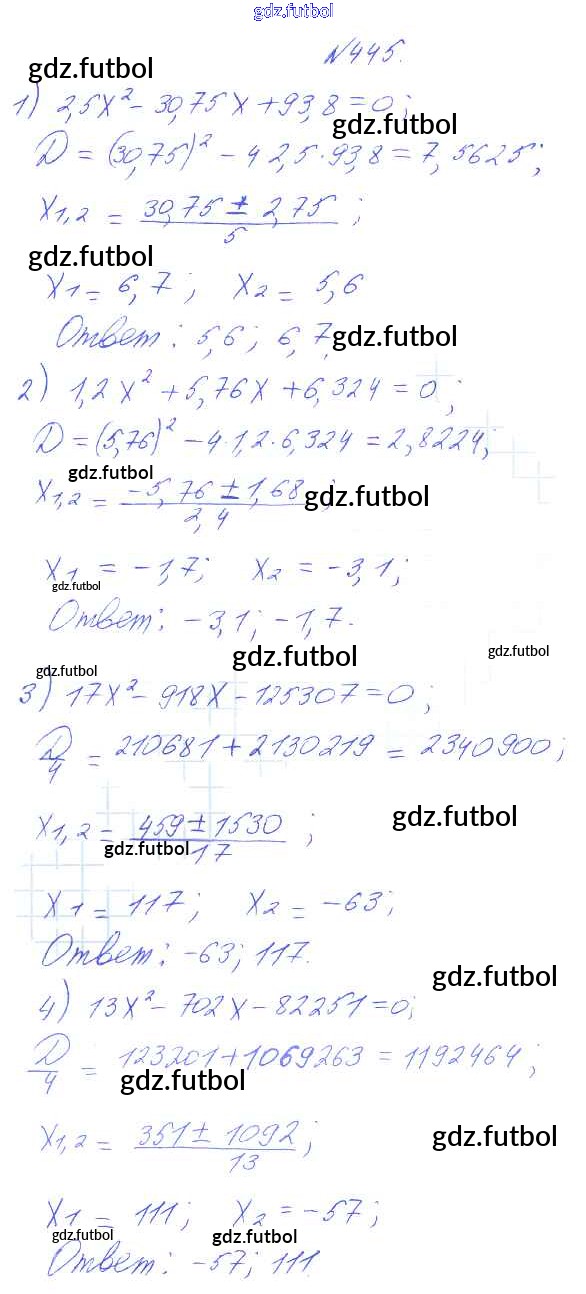 www.gdz.futbol
N445.
gdz.futbol
1) 2,5x² - 30,75x + 93,8 = 0;
gdz.futbol
D = (30,75)² - 4 2,5·93,8 = 7,5625;
x1,2 = (30,75 ± 2,75)/5;
gdz.futbol
x1 = 6,7; x2 = 5,6
Ответ: 5,6; 6,7.
gdz.futbol
2) 1,2x² + 5,76x + 6,324 = 0;
D = (5,76)² - 4·1,2·6,324 = 2,8224;
gdz.futbol
x1,2 = (-5,76 ± 1,68)/2,4;
gdz.futbol
x1 = -1,7; x2 = -3,1;
gdz.futbol
Ответ: -3,1; -1,7.
gdz.futbol
gdz.futbol
gdz.futbol
3) 17x² - 918x - 125307 = 0;
D/4 = 210681 + 2130219 = 2340900;
gdz.futbol
x1,2 = (459 ± 1530)/17;
gdz.futbol
x1 = 117; x2 = -63;
Ответ: -63; 117.
gdz.futbol
4) 13x² - 702x - 82251 = 0;
D/4 = 123201 + 1069263 = 1192464;
gdz.futbol
x1,2 = (351 ± 1092)/13;
gdz.futbol
x1 = 111; x2 = -57;
gdz.futbol
gdz.futbol
Ответ: -57; 111.